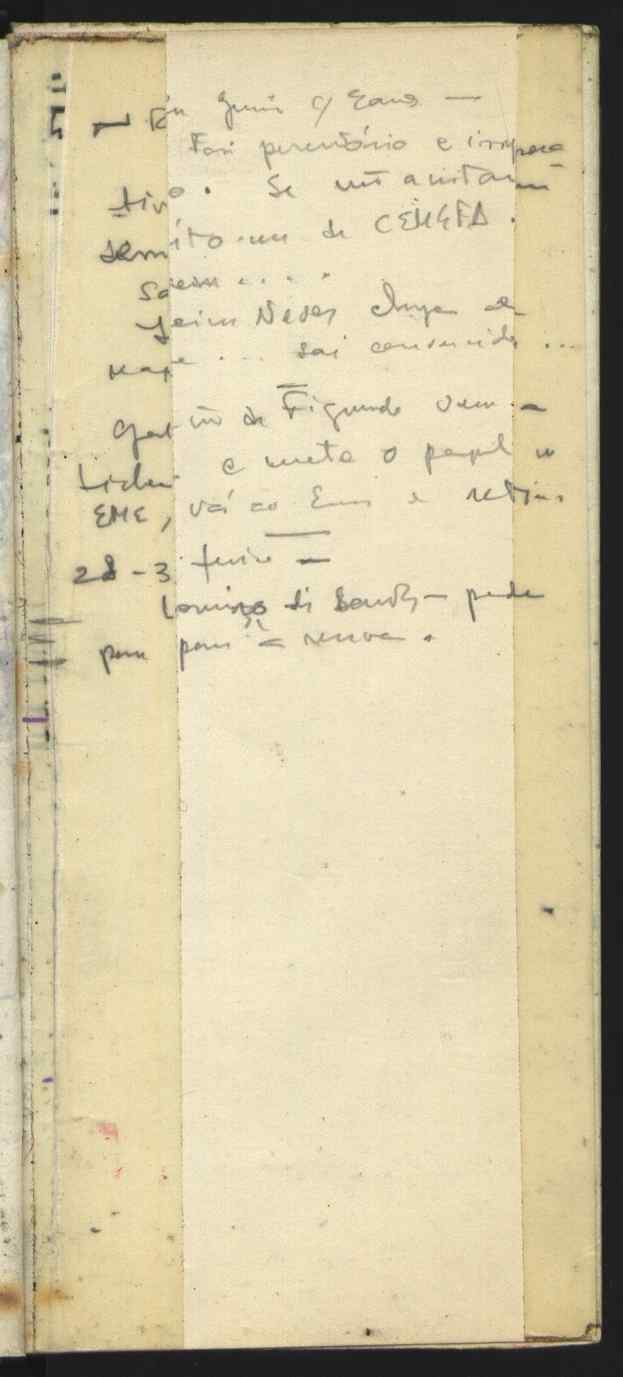 c/ Eanes —
Foi peremtório e impera
tivo. Se não aceitarem
demito-me de CEMGFA.
Saem....
Jaime Neves chega de
rape... sai convencido...
de Figueiredo vem -
e mete o papel no
EME, vai ao Eanes e retira.
28-3 feira —
Lourenço dos Santos — pede
para passar à reserva.